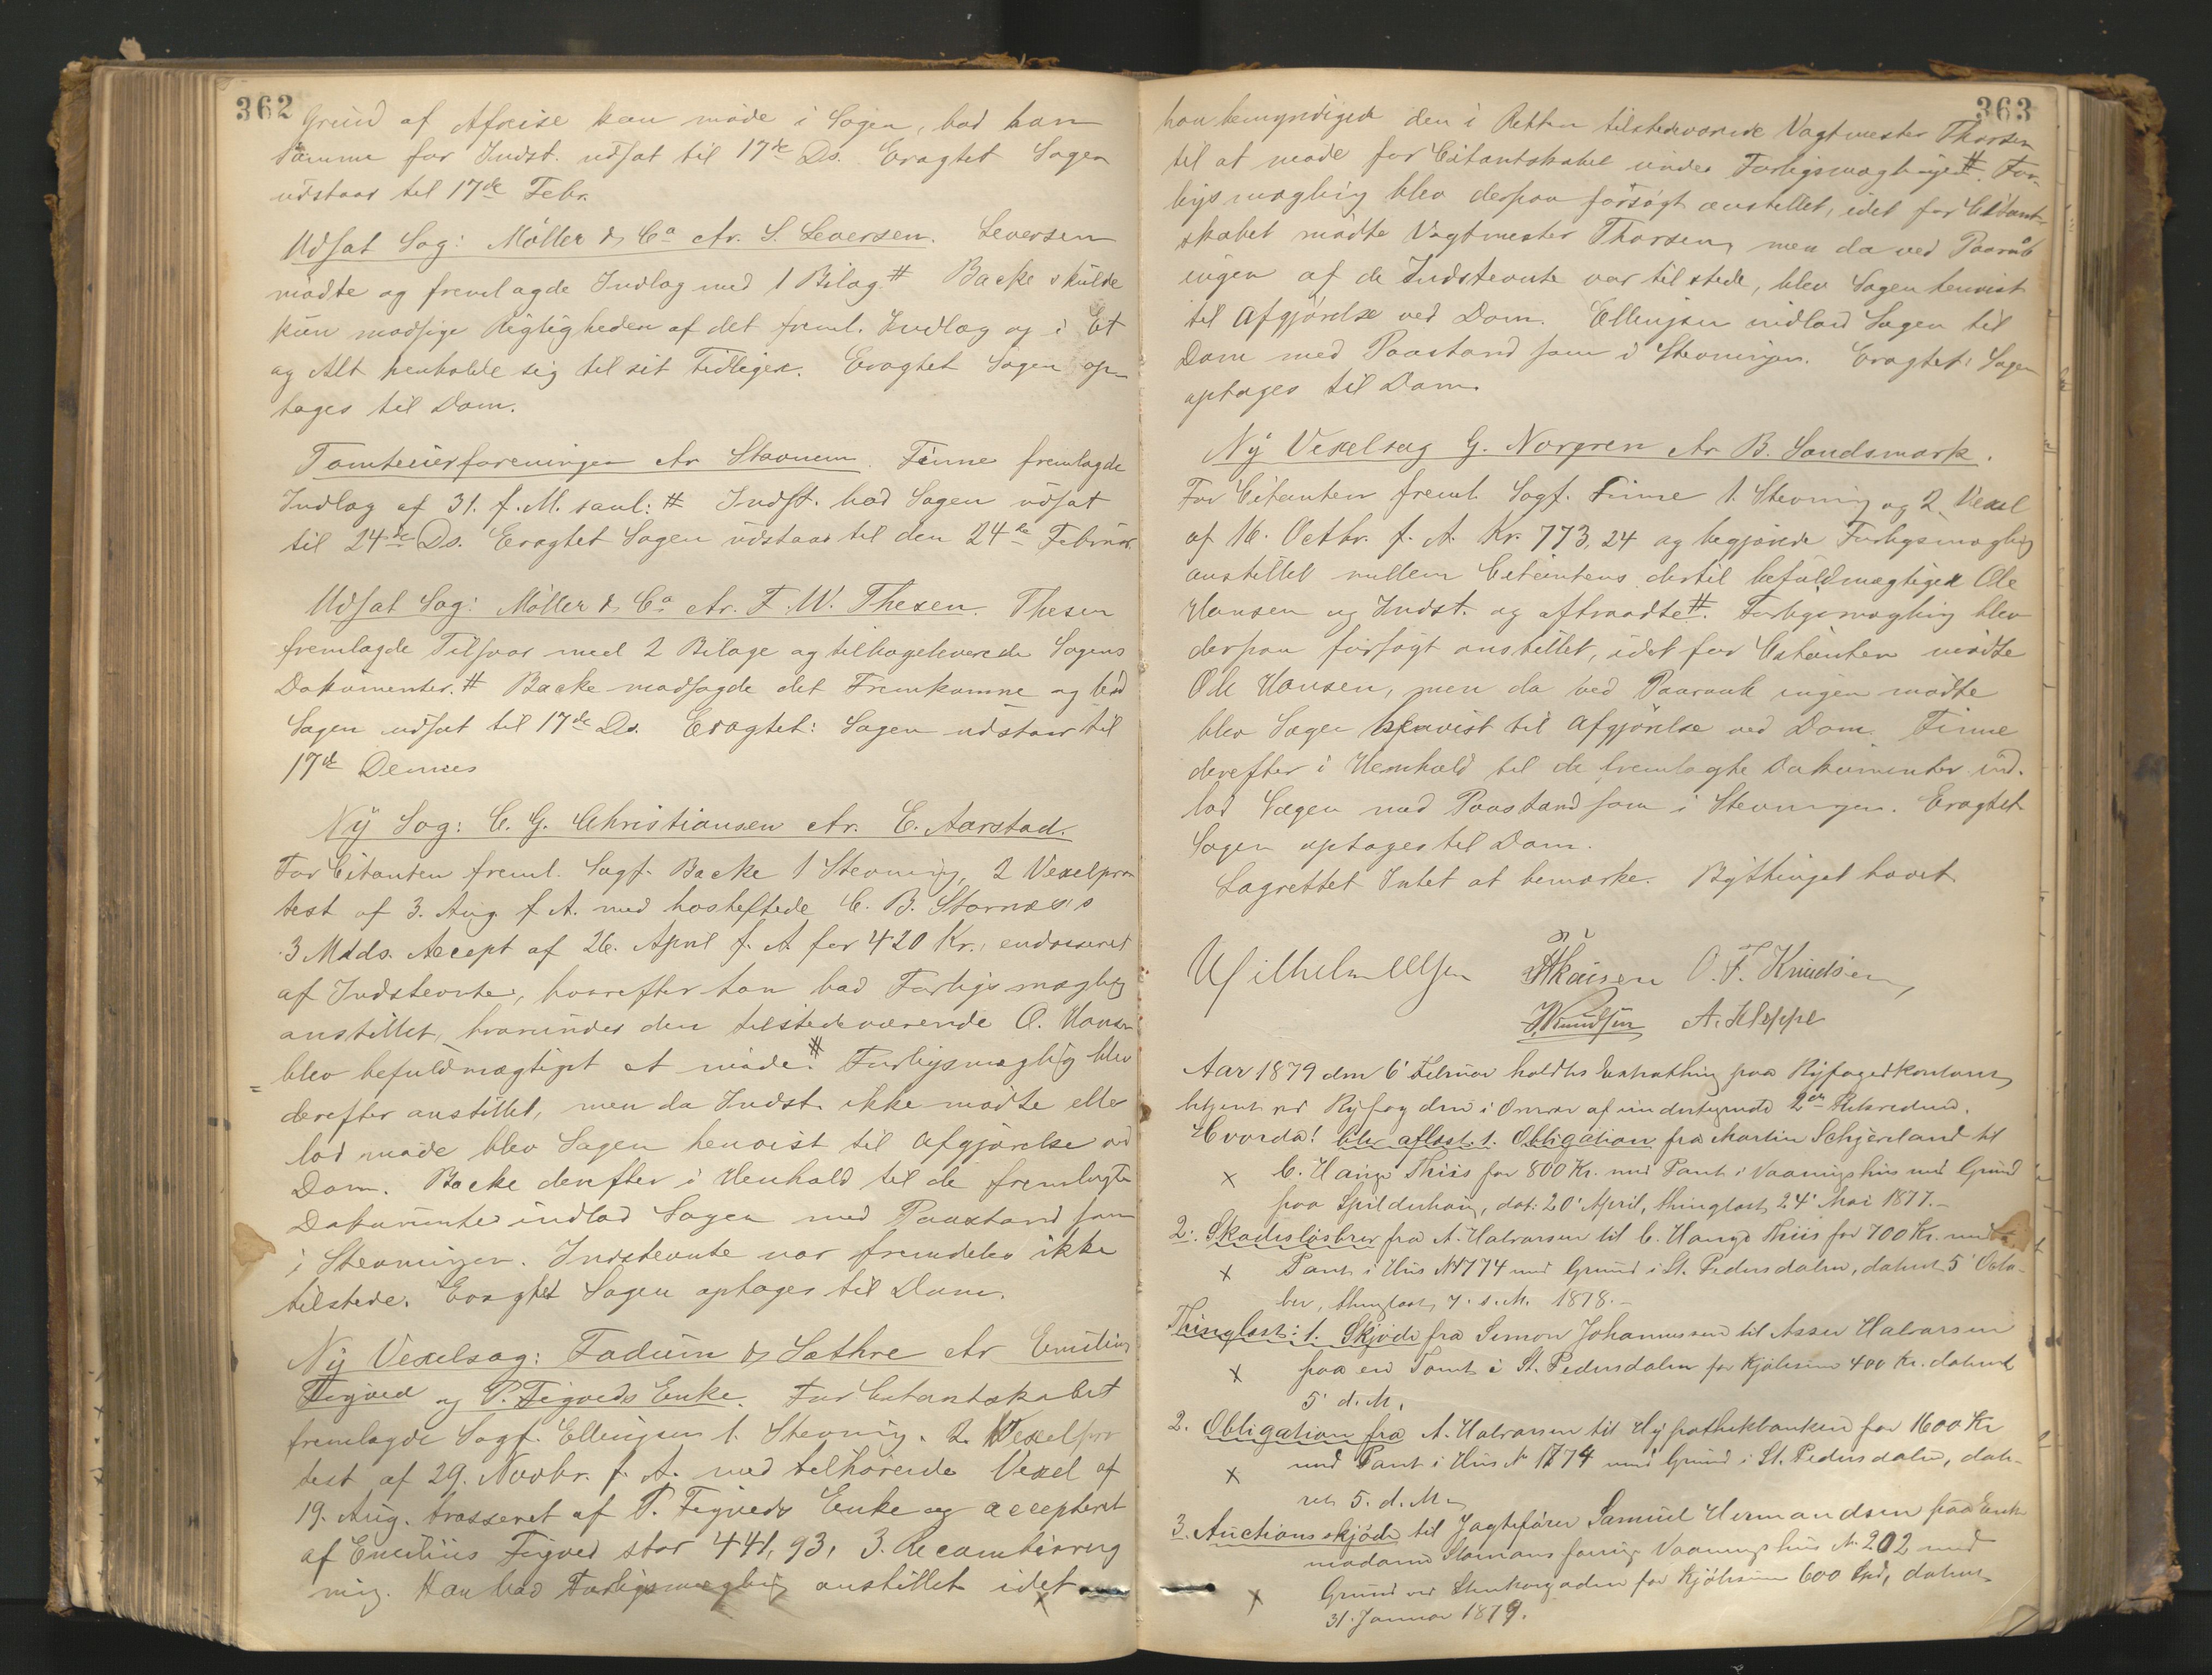 362
Grund af Afreise kan møde i Sagen, bad han
samme for Indst. udsat til 17de Ds. Eragtet Sagen
udstaar til 17de Febr.
Udsat Sag: Møller & Co ctr. S. Seversen. Seversen
mødte og fremlagde Indlæg med 1 Bilag # Backe skulde
kun modsige Rigtigheden af det freml. Indlæg og i Et
og Alt henholde sig til sit Tidligere. Eragtet Sagen op-
tages til Dom.
Tomteeierforeningen ctr Stavnem. Finne fremlagde
Indlæg af 31. f. M. saal: # Indst. bad Sagen udsat
til 24de Ds. Eragtet Sagen udstaar til den 24de Februar.
Udsat Sag: Møller & Co ctr. F. W. Thesen. Thesen
fremlagde Tilsvar med 2 Bilage og tilbageleverede Sagens
Dokumenter. # Backe modsagde det Fremkomne og bad
Sagen udsat til 17de Ds. Eragtet: Sagen udstaar til
17de Dennes
Ny Sag: C. G. Christiansen ctr. E. Aarstad.
For Citanten freml. Sagf. Backe 1 Stevning, 2 Vexelpro-
test af 3. Aug. f. A. med hosheftede C. B. Stornæs's
3 Mdds. Accept af 26. April f. A. for 420 Kr., endosseret
af Indstevnte, hvorefter han bad Forligsmægling
anstillet, hvorunder den tilstedeværende O. Hansen
blev befuldmægtiget at møde. # Forligsmægling blev
derefter anstillet, men da Indst. ikke mødte eller
lod møde blev Sagen henvist til Afgjørelse ved
Dom. Backe derefter i Henhold til de fremlagte
Dokumenter indlod Sagen med Paastand som
i Stevningen. Indstevnte var fremdeles ikke
tilstede. Eragtet Sagen optages til Dom.
Ny Vexelsag: Fadum & Sæthre ctr Emilius
Figved og P. Figveds Enke. For Citantskabet
fremlagde Sagf. Ellingsen 1. Stevning. 2. Vexelpro
test af 29. Novbr. f. A. med tilhørende Vexel af
19. Aug. trasseret af P. Figveds Enke og accepteret
af Emilius Figved stor 441,93, 3. Recambioreg
ning. Han bad Forligsmægling anstillet idet
363
han bemyndigede den i Retten tilstedeværende Vagtmester Thorsen
til at møde for Citantskabet under Forligsmæglingen #. For-
ligsmægling blev derpaa forsøgt anstillet, idet for Citant-
skabet mødte Vagtmester Thorsen, men da ved Paaraab
ingen af de Indstevnte var tilstede, blev Sagen henvist
til Afgjørelse ved Dom. Ellingsen indlod Sagen til
Dom med Paastand som i Stevningen. Eragtet: Sagen
optages til Dom.
Ny Vexelsag G. Norgren ctr B. Sandsmark.
For Citanten freml. Sagf. Finne 1. Stevning og 2. Vexel
af 16. Octbr. f. A. Kr. 773,24 og begjærede Forligsmægling
anstillet mellem Citantens dertil befuldmægtigede Ole
Hansen og Indst. og aftraadte #. Forligsmægling blev
derpaa forsøgt anstillet, idet for Citanten mødte
Ole Hansen, men da ved Paaraab ingen mødte
blev Sagen henvist til Afgjørelse ved Dom. Finne
derefter i Henhold til de fremlagte Dokumenter ind-
lod Sagen med Paastand som i Stevningen. Eragtet
Sagen optages til Dom.
Lagrettet Intet at bemærke. Bythinget hævet.
Wilhelm Olsen O. F. Knudsen,
J. Knudsen A. Kleppe
Aar 1879 den 6' Februar holdtes Extrathing paa Byfogedkontoret
betjent ved Byfogden i Overvær af undertegnede 2de Retsvidner.
Hvorda: blev aflæst: 1. Obligation fra Martin Schjæveland til
x C. Hauge Thiis for 800 Kr. med Pant i Vaaningshus med Grund
paa Spilderhaug, dat: 20' April, thinglæst 24' Mai 1877.-
2: Skadesløsbrev fra A. Halvorsen til C. Hauge Thiis for 700 Kr. med
x Pant i Hus No 1774 med Grund i St. Pedersdalen, dateret 5' Octo-
ber, thinglæst 7. s. M. 1878.-
Thinglæst: 1. Skjøde fra Simon Johannessen til Asser Halvorsen
x paa en Tomt i St. Pedersdalen for Kjøbesum 400 Kr. dateret
5' d. M.
2. Obligation fra A. Halvorsen til Hypothekbanken for 1600 Kr
x med Pant i Hus No 1774 med Grund i St. Pedersdalen, date-
ret 5. d. M.
3. Auctionsskjøde til Jagtefører Samuel Hermandsen paa Enke
madame Slomans forrige Vaaningshus No 202 med
x Grund ved for Kjøbesum 600 Spd, dateret
31. Januar 1879.